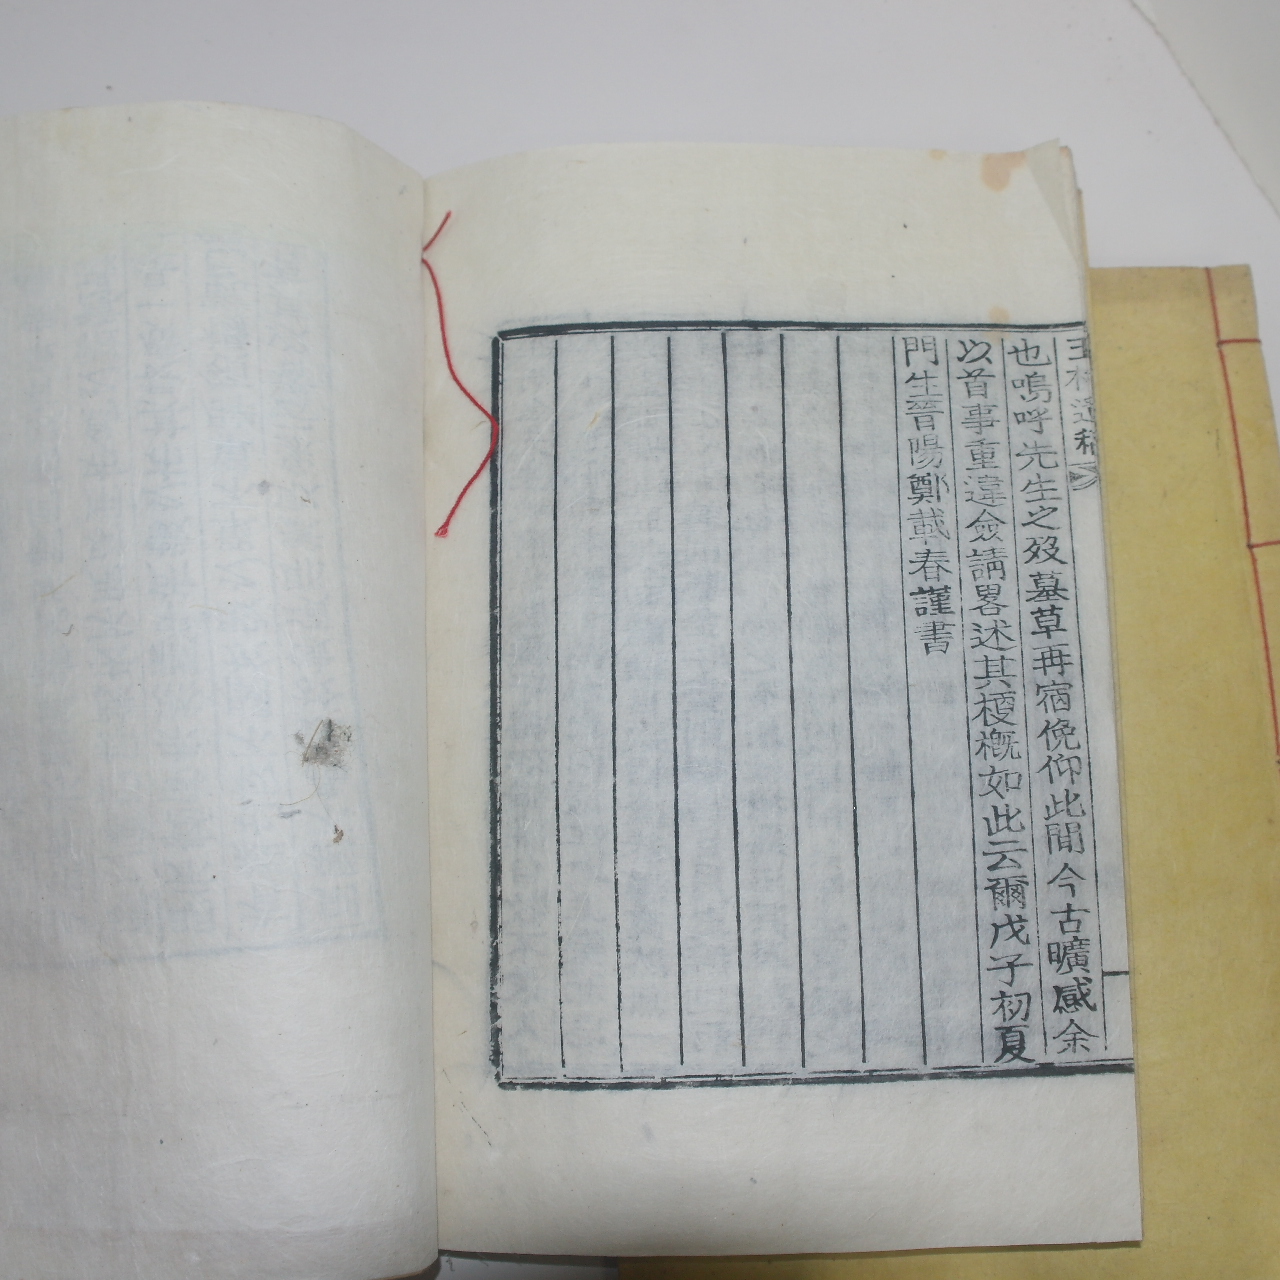 玉村遺稿
也嗚呼先生之歿墓草再宿俛仰此間今古曠感余
以首事重違僉請畧述其梗槪如此云爾戊子初夏
門生晉陽鄭載春謹書